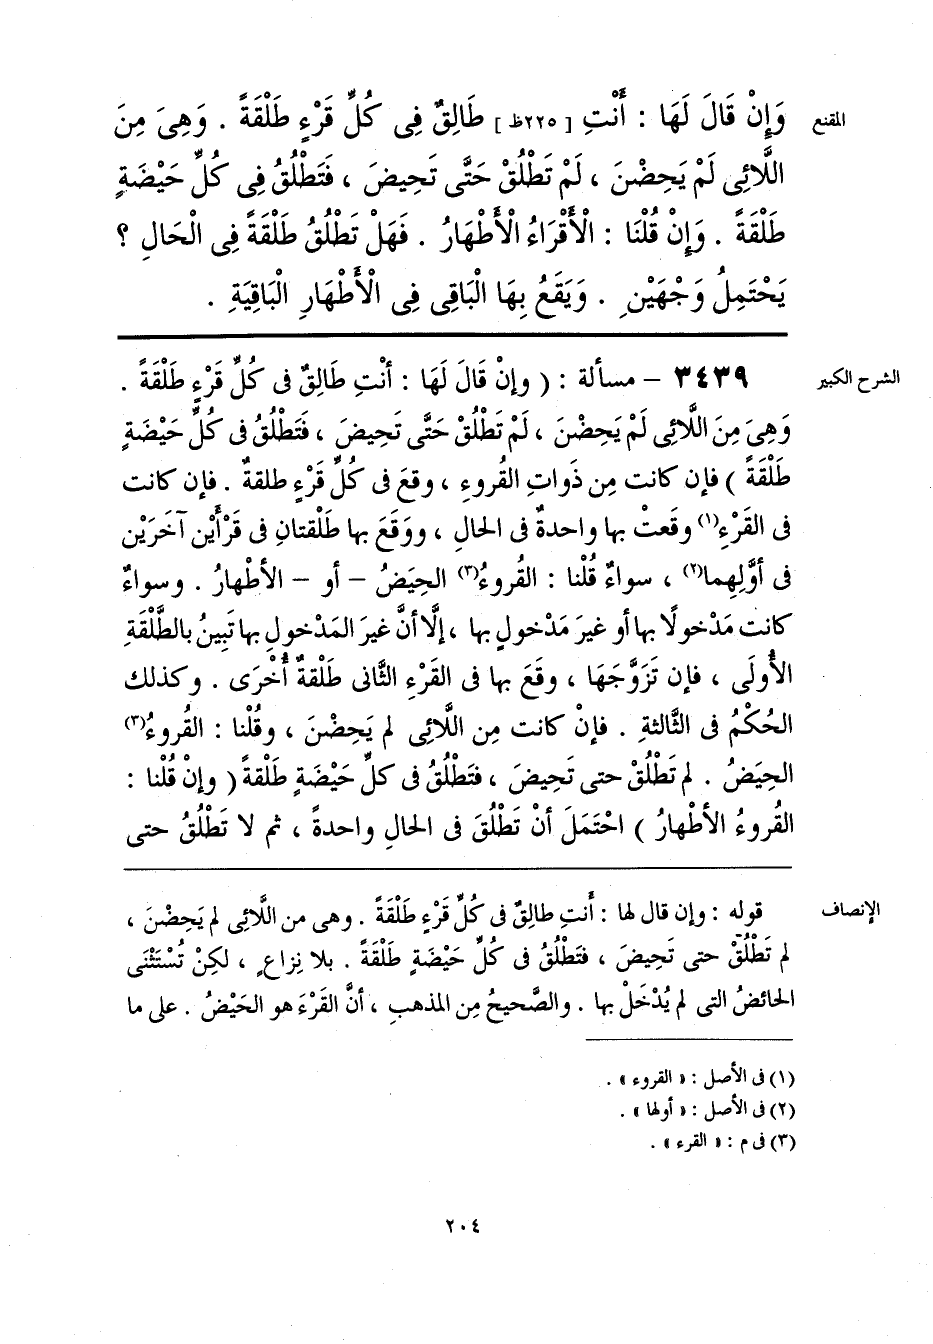 المقنع
وَإِنْ قَالَ لَهَا : أَنْتِ [ ٢٢٥ظ ] طَالِقٌ فِى كُلِّ قَرْءٍ طَلْقَةً . وَهِىَ مِنَ
اللَّائِى لَمْ يَحِضْنَ ، لَمْ تَطْلُقْ حَتَّى تَحِيضَ ، فَتَطْلُقُ فِى كُلِّ حَيْضَةٍ
طَلْقَةً . وَإِنْ قُلْنَا : الْأَقْرَاءُ الْأَطْهَارُ . فَهَلْ تَطْلُقُ طَلْقَةً فِى الْحَالِ ؟
يَحْتَمِلُ وَجْهَيْنِ . وَيَقَعُ بِهَا الْبَاقِى فِى الْأَطْهَارِ الْبَاقِيَةِ .
الشرح الكبير
٣٤٣٩ – مسألة : ( وإنْ قَالَ لَهَا : أنْتِ طَالِقٌ فى كُلِّ قَرْءٍ طَلْقَةً .
وَهِىَ مِنَ اللَّائِى لَمْ يَحِضْنَ ، لَمْ تَطْلُقْ حَتَّى تَحِيضَ ، فَتَطْلُقُ فى كُلِّ حَيْضَةٍ
طَلْقَةً ) فإن كانت مِن ذَواتِ القُروءِ ، وقعَ فى كُلِّ قَرْءٍ طلقةٌ . فإن كانت
فى القَرْءِ(١) وقَعتْ بها واحدةٌ فى الحالِ ، ووَقَعَ بها طَلْقتانِ فى قَرْأَيْن آخَرَيْن
فى أوَّلِهِما(٢) ، سواءٌ قُلْنا : القُروءُ(٣) الحِيَضُ – أو – الأطْهارُ . وسواءٌ
كانت مَدْخولًا بها أو غيرَ مَدْخولٍ بها ، إلَّا أنَّ غيرَ المَدْخولِ بها تَبِينُ بالطَّلْقَةِ
الأُولَى ، فإن تَزَوَّجَهَا ، وقَعَ بها فى القَرْءِ الثَّانى طَلْقةٌ أُخْرَى . وكذلك
الحُكْمُ فى الثَّالثةِ . فإنْ كانت مِن اللَّائِى لم يَحِضْنَ ، وقُلْنا : القُروءُ(٣)
الحِيَضُ . لم تَطْلُقْ حتى تَحِيضَ ، فتَطْلُقُ فى كلِّ حَيْضَةٍ طَلْقةً ( وإنْ قُلْنا :
القُروءُ الأطْهارُ ) احْتَمَلَ أنْ تَطْلُقَ فى الحالِ واحدةً ، ثم لا تَطْلُقُ حتى
الإنصاف
قوله : وإن قال لها : أَنتِ طالِقٌ فى كُلِّ قَرْءٍ طَلْقَةً . وهى من اللَّائِى لم يَحِضْنَ ،
لم تَطْلُقْ حتى تَحِيضَ ، فتَطْلُقُ فى كُلِّ حَيْضَةٍ طَلْقَةً . بلا نِزاعٍ ، لكِنْ تُسْتَثْنَى
الحائضُ التى لم يُدْخَلْ بها . والصَّحيحُ مِن المذهبِ ، أنَّ القَرْءَ هو الحَيْضُ . على ما
(١) فى الأصل : « القروء » .
(٢) فى الأصل : « أولها » .
(٣) فى م : « القرء » .
٢٠٤